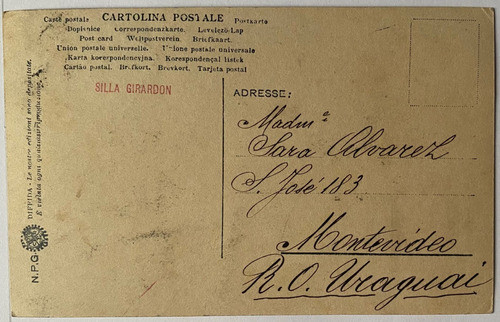 Carte postale CARTOLINA POSTALE Postkarte
Dopisnice Correspondenzkarte. Levelező-Lap
Post card Weltpostverein. Briefkaart.
Union postale universelle. Unione postale universale
Karta korespondencyjna. Korespondençal listek
Cartão postal. Brefkort. Brevkort. Tarjeta postal
SILLA GIRARDON
ADRESSE:
Madm.ª
Sara Alvarez
S. José 183
Montevideo
R. O. Uraguai
DIFFIDA - Le nostre edizioni sono depositate.
E vietata ogni qualsiasi riproduzione.
N.P.G.